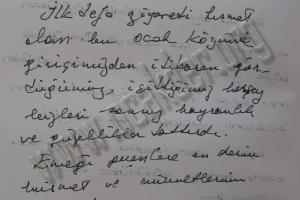 İlk defa ziyareti kısmet
olan bu ocak köyüne
girişimizden itibaren gör-
düğümüz, işittiğimiz herşey
bizleri sonsuz hayranlık
ve güzellikler kattırdı.
Emeği geçenlere en derin
hürmet ve minnetlerimi